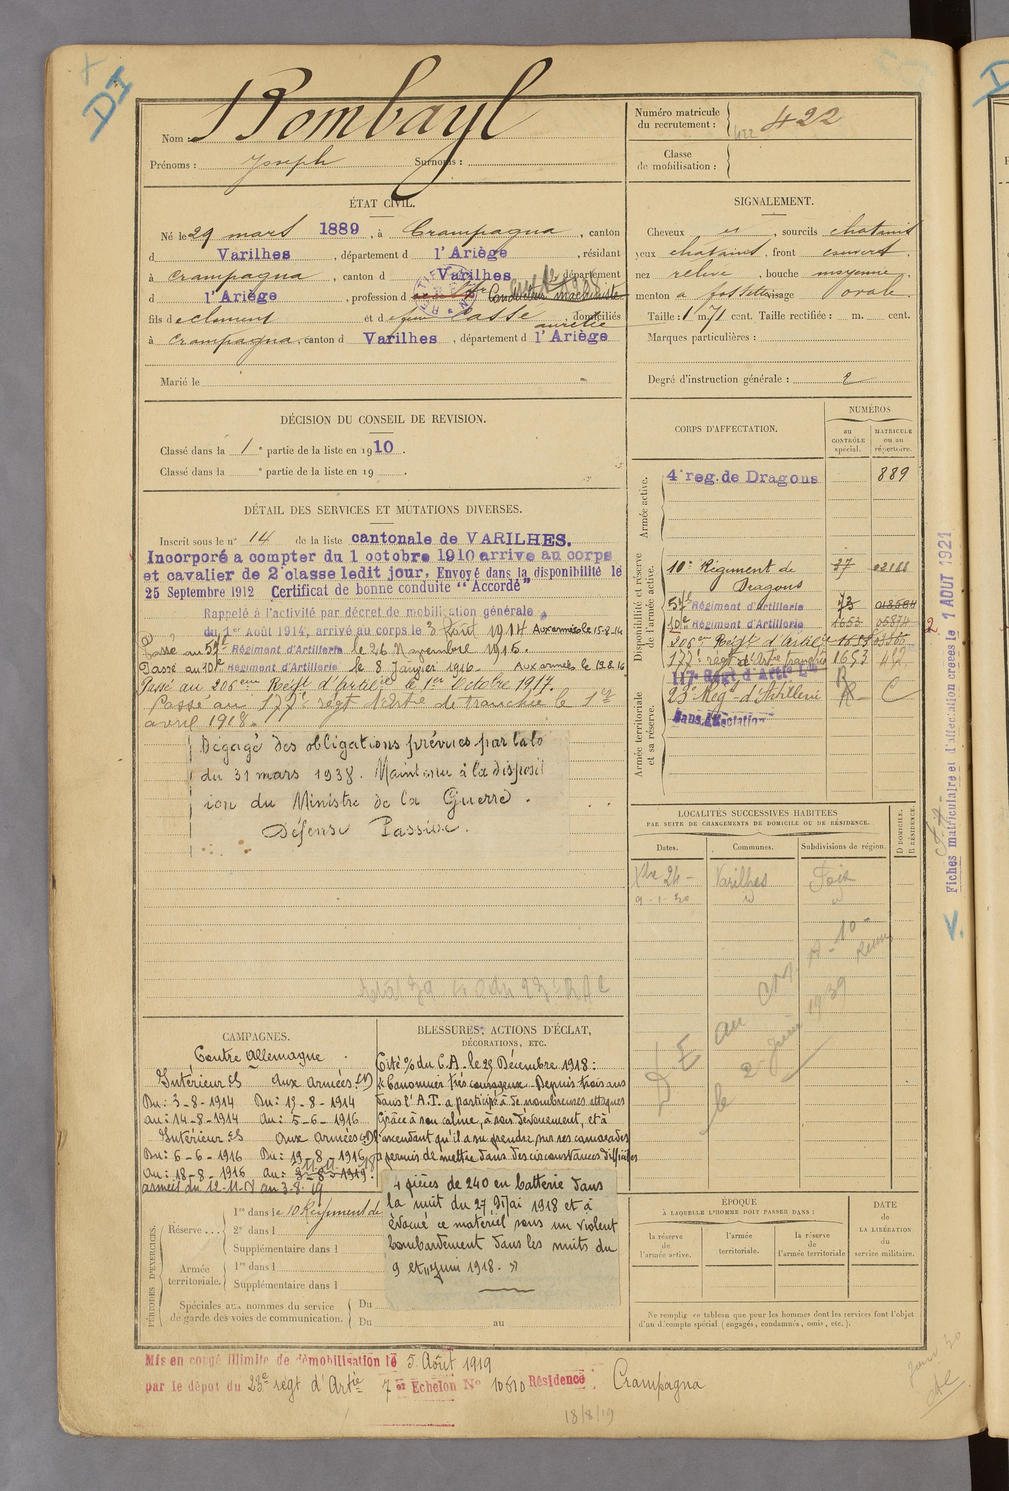 DI
Nom : Bombayl
Prénoms : Joseph Surnoms :
Numéro matricule du recrutement : 422
Classe de mobilisation :
ÉTAT CIVIL.
Né le 29 mars 1889, à Crampagna, canton
d Varilhes, département d l'Ariège, résidant
à Crampagna, canton d Varilhes, département
d l'Ariège, profession d Conducteur machiniste
fils de Clément et de feue Casse Aurélie, domiciliés
à Crampagna, canton d Varilhes, département d l'Ariège
Marié le
SIGNALEMENT.
Cheveux et, sourcils chatains
yeux chatains, front couvert
nez relevé, bouche moyenne
menton à fossette, visage ovale
Taille : 1 m. 71 cent. Taille rectifiée : m. cent.
Marques particulières :
Degré d'instruction générale : 2
DÉCISION DU CONSEIL DE REVISION.
Classé dans la 1e partie de la liste en 1910.
Classé dans la e partie de la liste en 19 .
DÉTAIL DES SERVICES ET MUTATIONS DIVERSES.
Inscrit sous le n° 14 de la liste cantonale de VARILHES.
Incorporé a compter du 1 octobre 1910 arrive au corps
et cavalier de 2e classe ledit jour. Envoyé dans la disponibilité le
25 Septembre 1912 Certificat de bonne conduite "Accordé"
Rappelé à l'activité par décret de mobilisation générale
du 1er Août 1914, arrivé au corps le 3 Août 1914 Aux armées le 15-8-14
Passé au 57e Régiment d'Artillerie le 26 Novembre 1915.
Passé au 10e Régiment d'Artillerie le 8 Janvier 1916. Aux armées le 19.8.16
Passé au 206eme Régt d'artillerie le 1er Octobre 1917.
Passé au 177e régt d'Artie de tranchée le 1er
avril 1918.
Dégagé des obligations prévues par la loi
du 31 mars 1938. Maintenu à la disposit
ion du Ministre de la Guerre.
Défense Passive.
CORPS D'AFFECTATION.
NUMÉROS
au CONTRÔLE spécial.
MATRICULE ou au répertoire.
Armée active.
4e reg. de Dragons 889
Disponibilité et réserve de l'armée active.
10e Régiment de Dragons 37 02166
57e Régiment d'Artillerie 73
10e Régiment d'Artillerie 1653
206e Régt d'Artie 1653
177e régt d'Artie tranchée 1653 412
117e Régt d'Artie Lde
23e Régt d'Artillerie
Sans Affectation
Armée territoriale et sa réserve.
LOCALITÉS SUCCESSIVES HABITÉES
PAR SUITE DE CHANGEMENTS DE DOMICILE OU DE RÉSIDENCE.
Dates. Communes. Subdivisions de région. D DOMICILE. R RÉSIDENCE.
Xbre 24 Varilhes Foix
9-1-30
CAMPAGNES.
Contre Allemagne
Intérieur CS Aux armées CD
Du : 3-8-1914 Du : 15-8-1914
au : 14-8-1914 au : 5-6-1916
Intérieur CS Aux armées CD
Du : 6-6-1916 Du : 19-8-1916
au : 18-8-1916 au :
armées du 12.11.18 au 3.8.19
BLESSURES, ACTIONS D'ÉCLAT,
DÉCORATIONS, ETC.
Cité % du C.A. le 25 Décembre 1918 :
« Canonnier très courageux. Depuis trois ans
dans l'A.T. a participé à de nombreuses attaques
Grâce à son calme, à son dévouement, et à
l'ascendant qu'il a su prendre sur ses camarades
a permis de mettre dans des circonstances difficiles
4 pièces de 240 en batterie dans
la nuit du 27 Mai 1918 et à
évacué ce matériel sous un violent
bombardement dans les nuits du
9 et 11 juin 1918. »
PÉRIODES D'EXERCICES.
Réserve... 1re dans le 10 Régiment de
2e dans l
Supplémentaire dans l
Armée territoriale. 1re dans l
Supplémentaire dans l
Spéciales aux hommes du service de garde des voies de communication. Du
Du au
ÉPOQUE
À LAQUELLE L'HOMME DOIT PASSER DANS :
la réserve de l'armée active.
l'armée territoriale.
la réserve de l'armée territoriale
DATE de LA LIBÉRATION du service militaire.
Ne remplir ce tableau que pour les hommes dont les services font l'objet
d'un décompte spécial (engagés, condamnés, omis, etc.).
Mis en congé illimité de démobilisation le 5 Août 1919
par le dépôt du 23e regt d'Artie 7e Echelon N° 10510 Résidence : Crampagna
18/8/19
Fiches matriculaire et d'affectation créées le 1 AOUT 1921